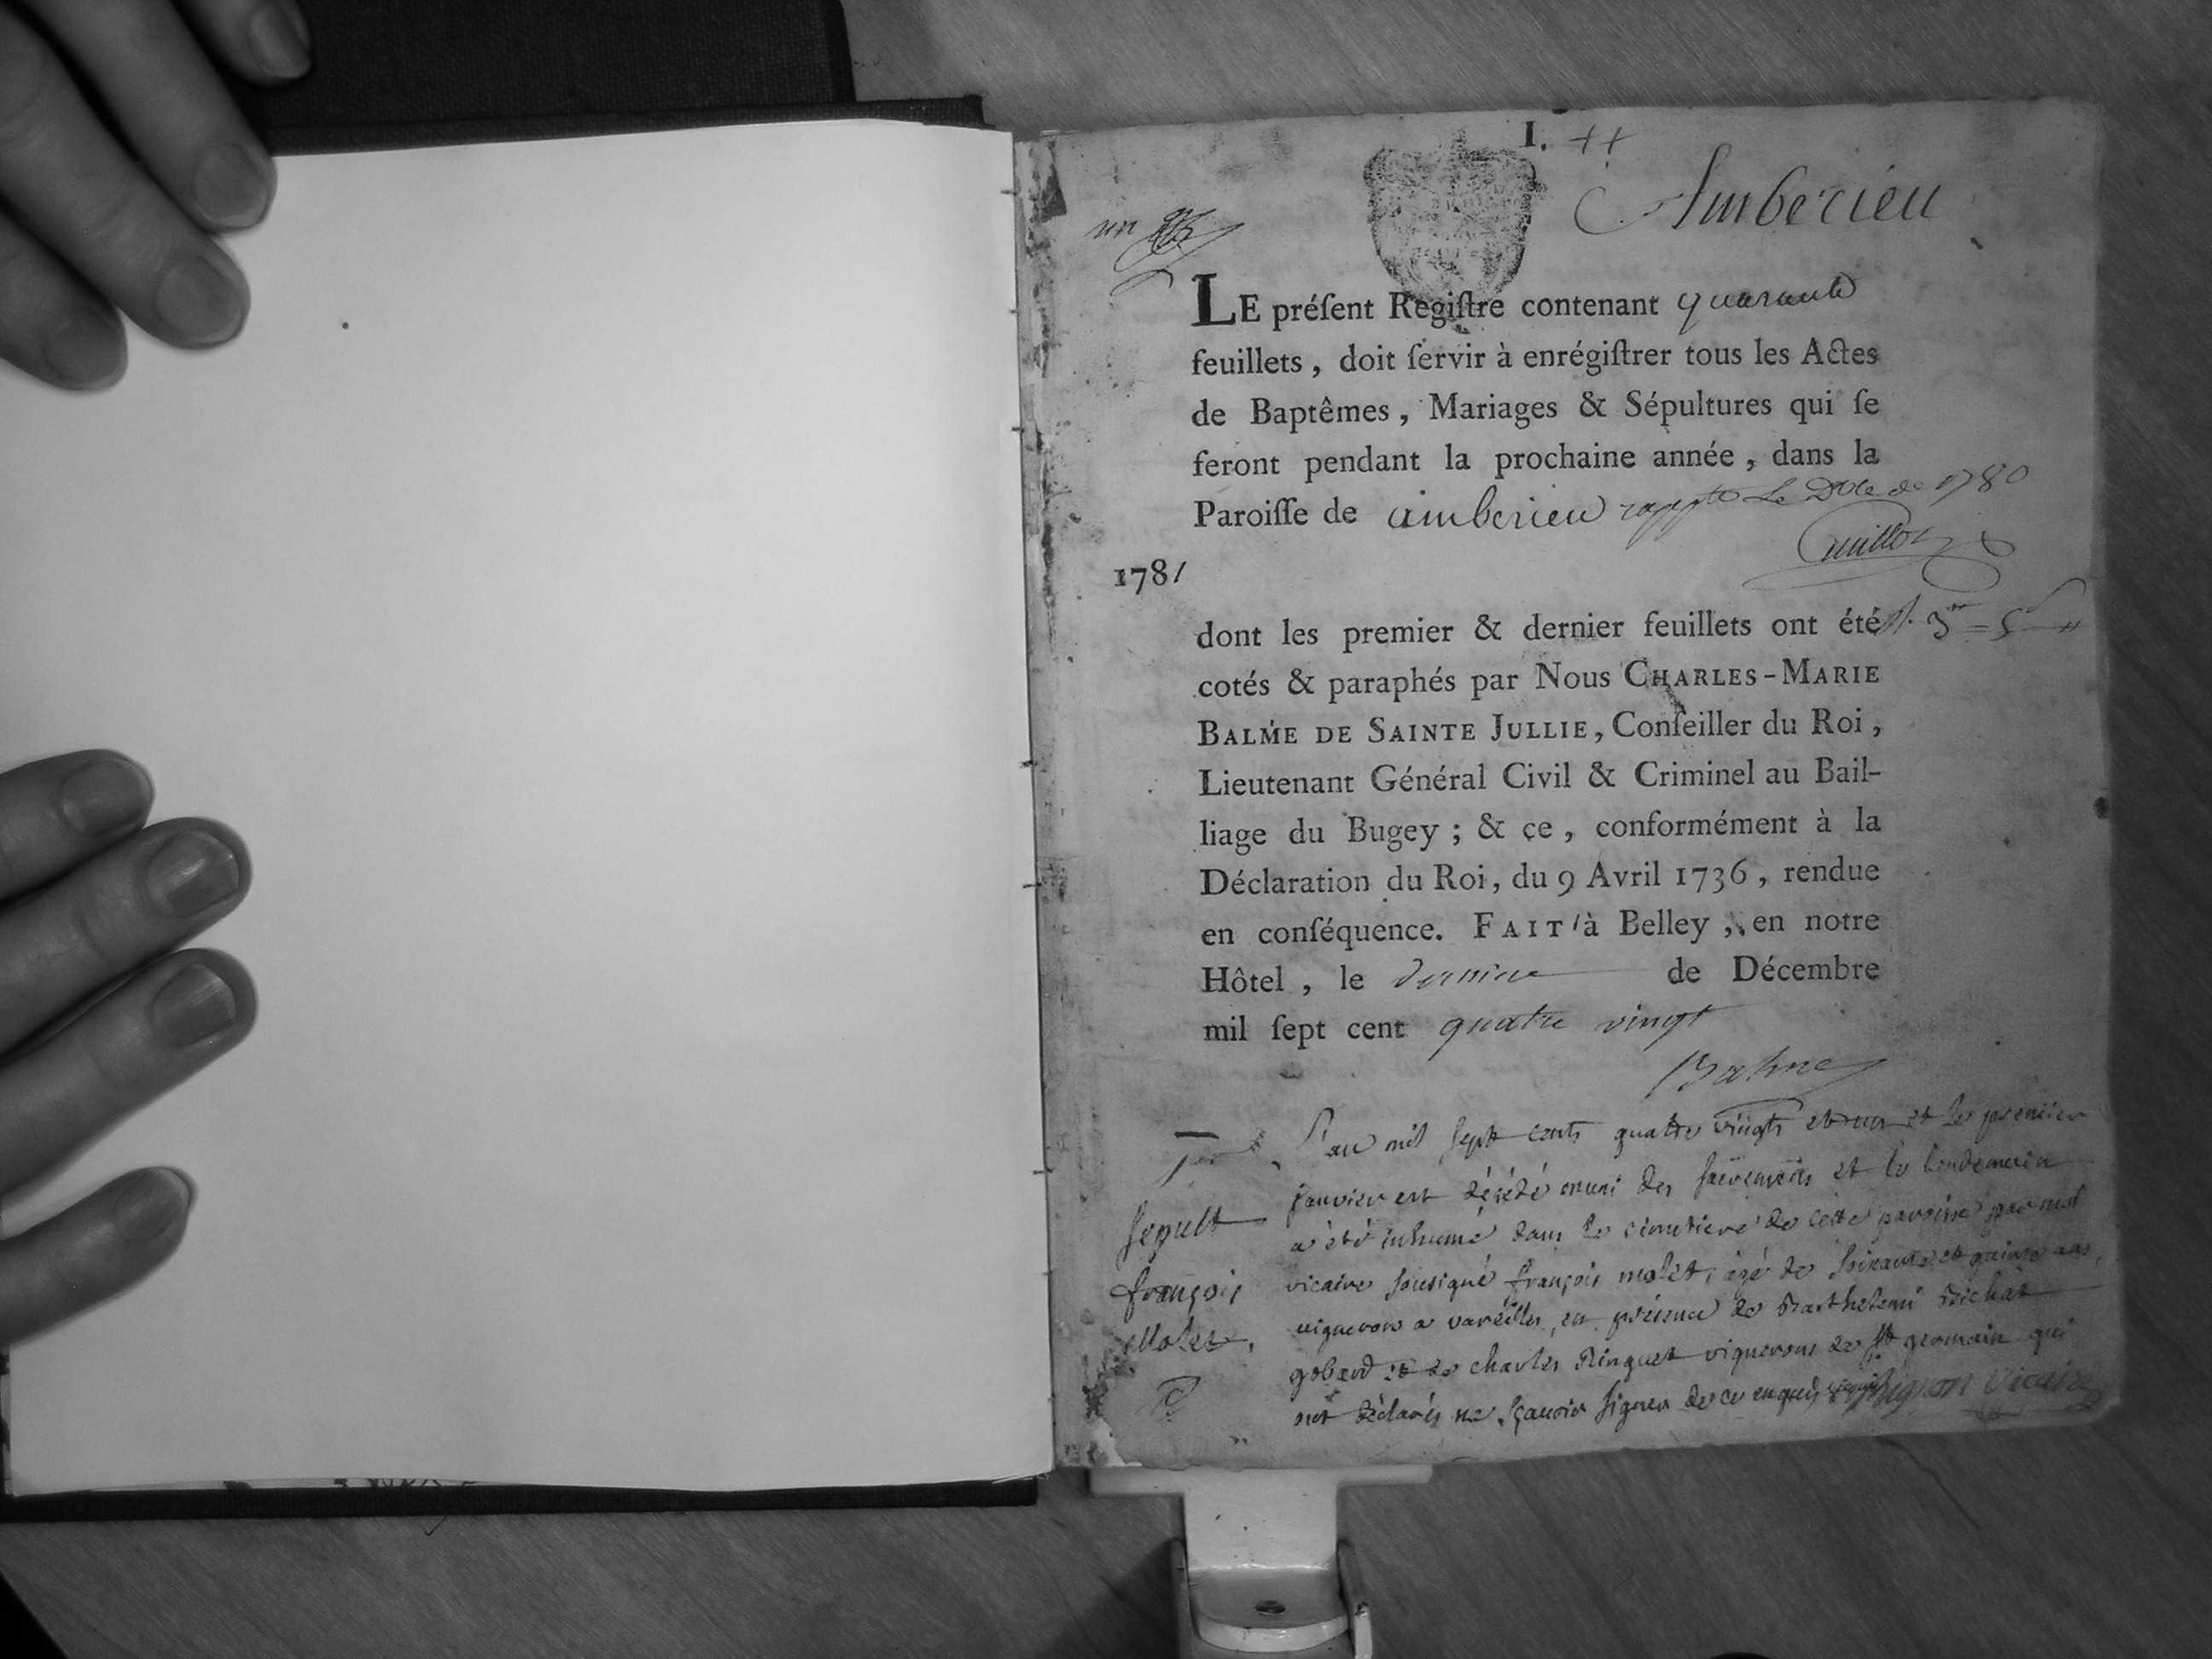 I. ++
Amberieu
un
LE préſent Regiſtre contenant quarante
feuillets, doit ſervir à enrégiſtrer tous les Actes
de Baptêmes, Mariages & Sépultures qui ſe
feront pendant la prochaine année, dans la
Paroiſſe de amberieu rappté Le Dble de 1780
1781
dont les premier & dernier feuillets ont été
cotés & paraphés par Nous CHARLES-MARIE
BALME DE SAINTE JULLIE, Conſeiller du Roi,
Lieutenant Général Civil & Criminel au Bail-
liage du Bugey; & ce, conformément à la
Déclaration du Roi, du 9 Avril 1736, rendue
en conſéquence. FAIT à Belley, en notre
Hôtel, le dernier de Décembre
mil ſept cent quatre vingt
Balme
L'an mil sept cents quatre vingts et un et le premier
janvier est décédé muni des sacrements et le lendemain
a été inhumé dans le cimetiere de cette paroisse par moi
vicaire sousigné françois molet, agé de soixante et quinze ans,
vigneron a vareilles, en présence de Barthelemi Michat
gobard et de charles Ringuet vignerons de st germain qui
ont déclarés ne sçauoir signer de ce enquis vicaire
1er
sepult
françois
Molet.